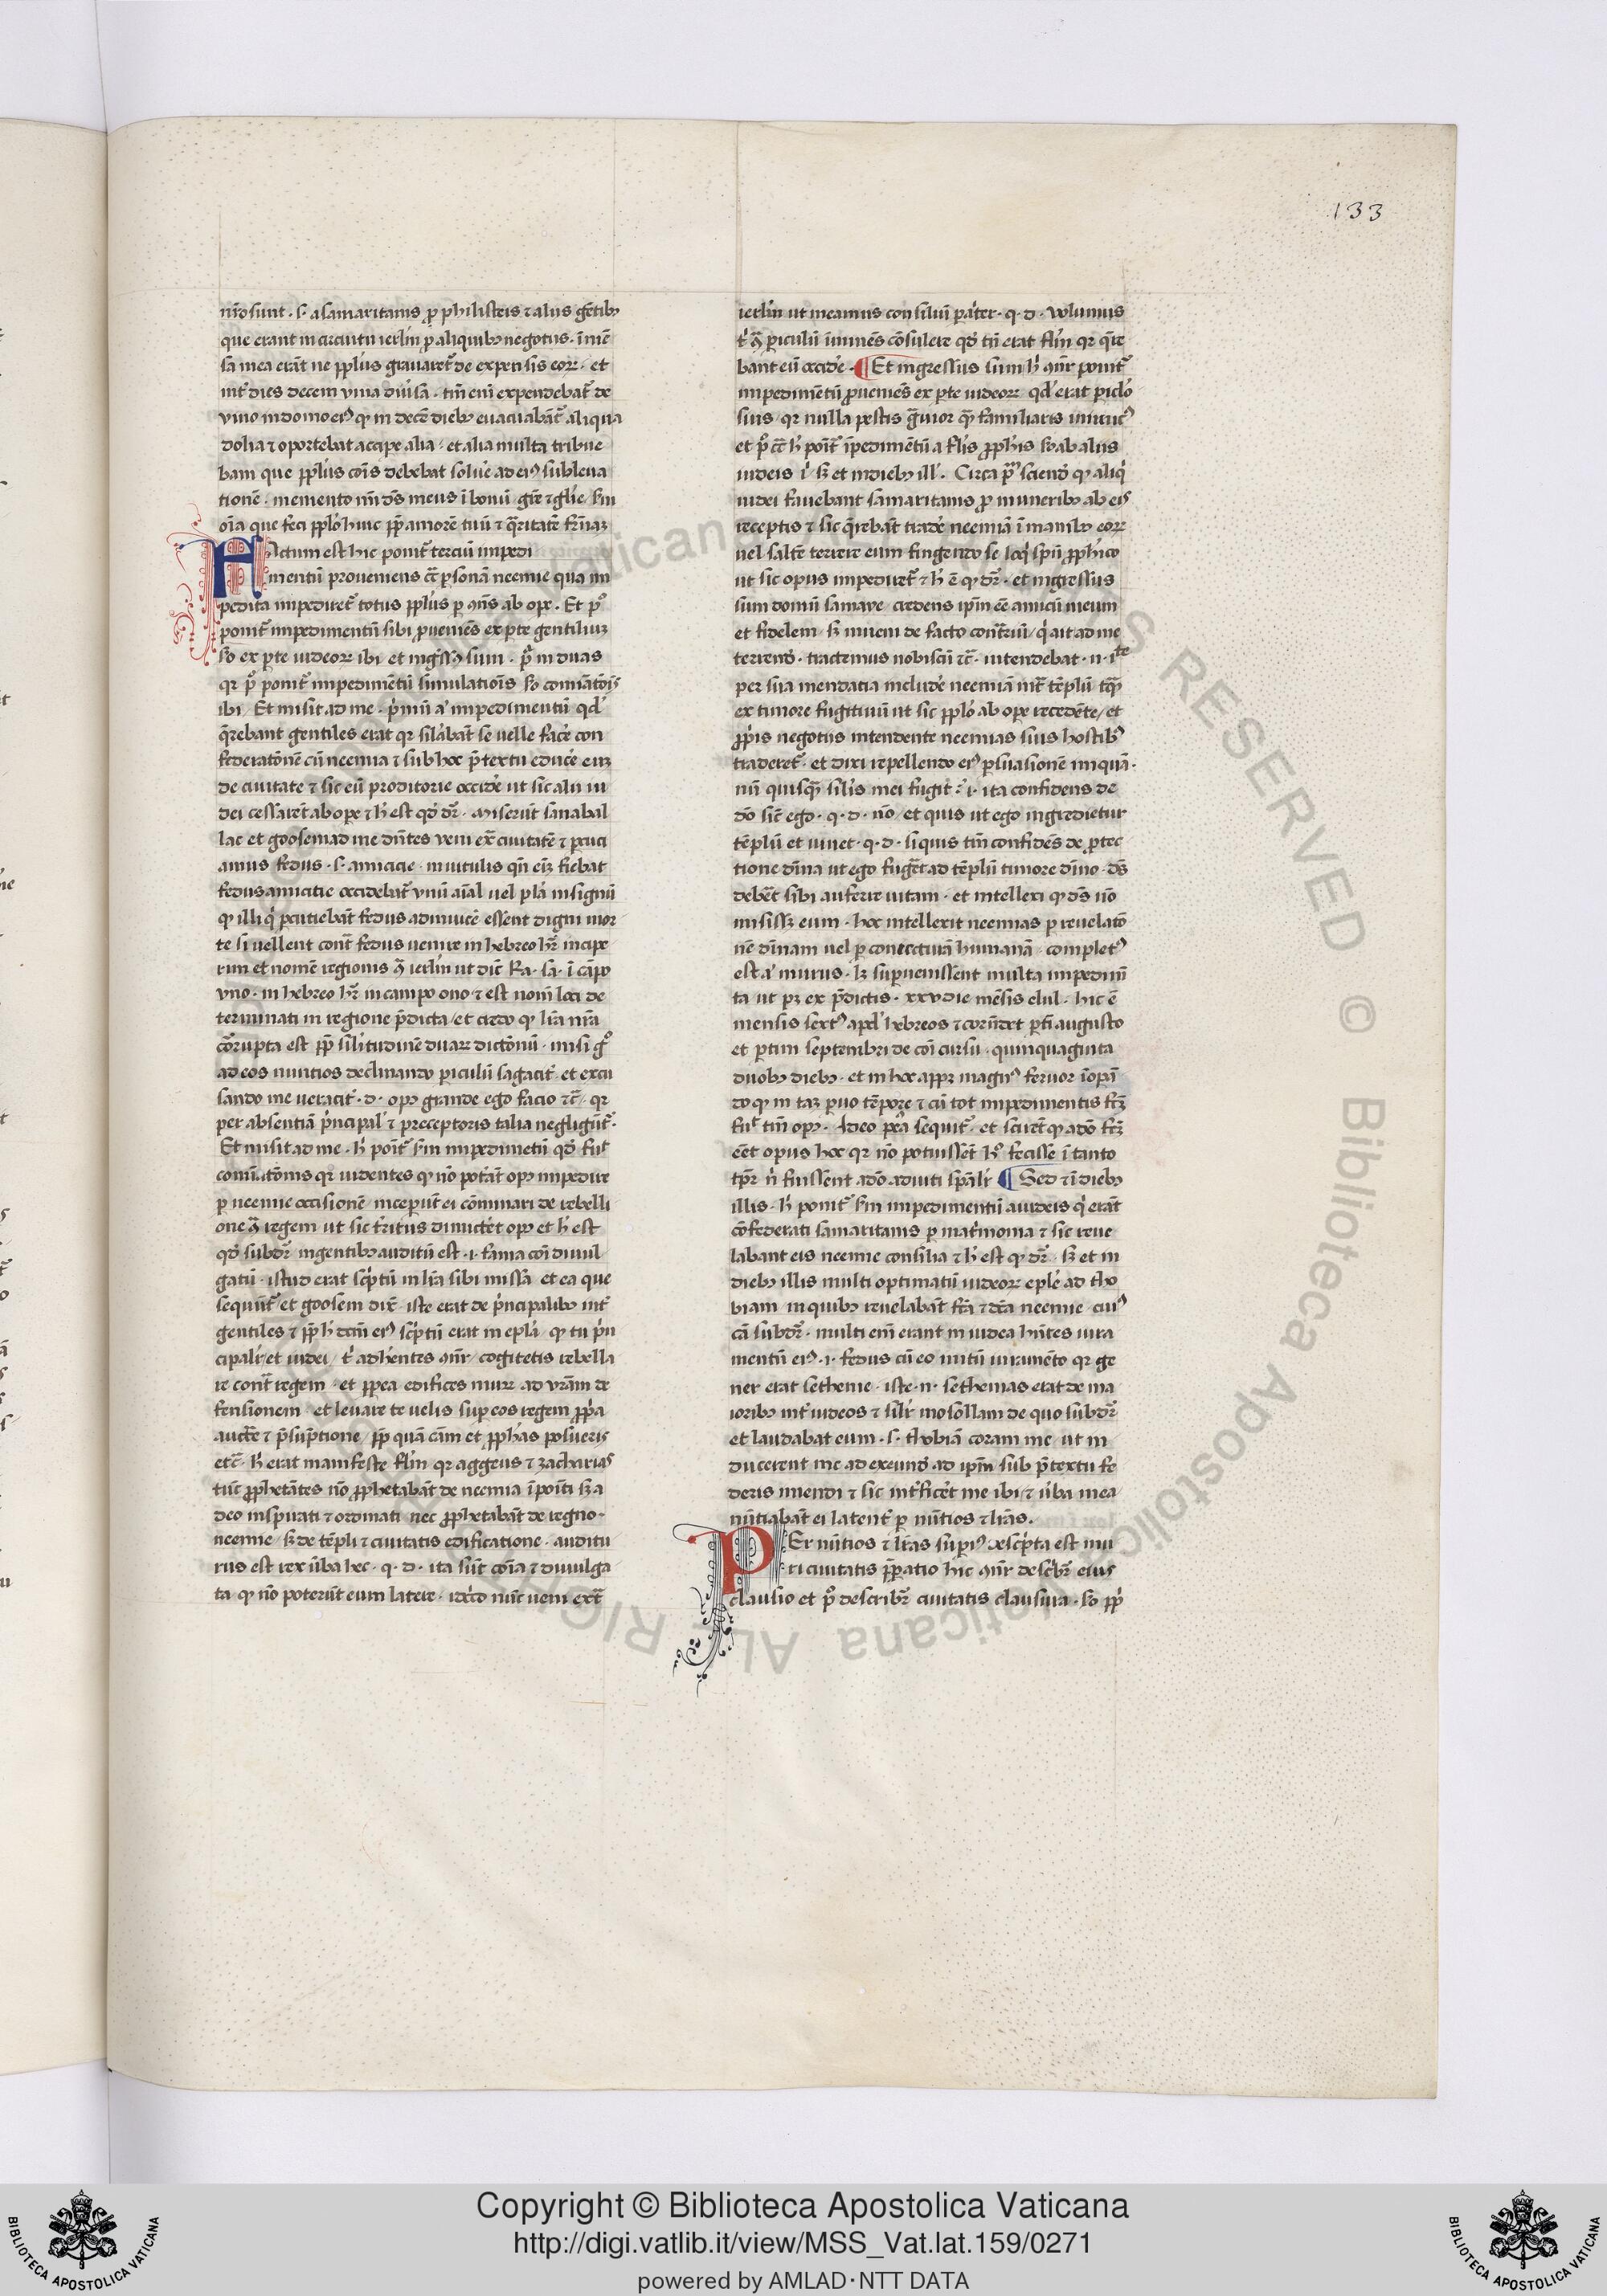 133
nr̄o sunt · s · a samaritanis ⁊ philisteis ⁊ aliis gētibꝫ
que erant in circuitu ierl̄m ꝓ aliquibꝫ negotiis · ī mē
sa mea erāt ne ppl̄us grauaret̄ de expensis eoꝝ · et
int̄ dies decem vina diūsa · tm̄ eni expendebat̄ de
vino in domo eiꝰ ꝙ in decē diebꝫ euacuabāt̄ aliqua
dolia ⁊ oportebat accipe alia · et alia multa tribue
bam que ppl̄us cōis debebat solūe ad eiꝰ subleua
tionē · memento mī ds̄ meus ī bonū / gr̄e ⁊ gl̄ie / sm̄
oīa que feci ppl̄o huic ꝓp̄ amorē tuū ⁊ q̄ritatē fr̄naꝫ
FActum est hic ponit̄ terciū impedi
mentū proueniens cc̄ ꝑsonā neemie qua im
pedita impediret̄ totus ppl̄us ꝑ ꝯn̄s ab oꝑe · Et pº
ponit̄ impedimentū sibi ꝓueniēs ex ꝑte gentiliuꝫ
sº ex ꝑte iudeoꝝ ibi · et ingr̄ssꝰ sum · pª in duas
qr pº ponit̄ impedimētū simulatiōis sº cōminatōis
ibi / Et misit ad me · p̄mū aͥ impedimentū qd̄
q̄rebant gentiles erat qr sil̄abāt se velle facͥe con
federatōnē cū neemia ⁊ sub hoc p̄textu educe̍ euꝫ
de ciuitate ⁊ sic eū proditorie occide̍ ut sic alii iu
dei cessarēt ab oꝑe ⁊ h̍ est qd̄ dr̄ · miserūt sanabal
lac et goosem ad me dn̄tes veni ext̄ ciuitatē ⁊ ꝑcuci
amus fedus · s · amicicie · in uitulis qn̄ eīꝫ fiebat
fedus amicitie occidebat̄ vnū aīal uel pl̄a in signū
ꝙ illi qͥ ꝑcutiebāt fedus adinuicē essent digni mor
te si vellent cont̄ fedus uenire in hebreo hr̄ in cipe
rim et nomē regionis c̄ͣ ierl̄m ut dic̄ Ra · sa · ī cāpo
vno · in hebreo hr̄ in campo ono ⁊ est nom̄ loci de
terminati in regione p̄dicta / et credo ꝙ lr̄a nr̄a
corrupta est ꝓp̄ sil̄itudinē duaꝝ dictōnū · misi gº
ad eos nuntios declinando ꝑiculū sagacit̄ · et excu
sando me veracit̄ · d · opꝰ grande ego facio ⁊c̄ · qr
per absentiā p̄ncipal̄ ⁊ preceptoris talia negligūt̄ ·
Et misit ad me · h̍ poīt̄ sm̄ impedimetū qd̄ fuͥt
cominatōnis qr uidentes ꝙ nō poterāt opꝰ impedire
ꝑ neemie occisionē inceꝑūt ei cōminari de rebelli
one c̄ͣ regem ut sic t̄ritus dimictēt opꝰ et h̍ est
qd̄ subdr̄ in gentibꝫ auditū est · i · fama cōi diuul
gatū · istud erat sc̄ptū in lr̄a sibi missa et ea que
sequūt̄ et goosem dix̄ · iste erat de p̄ncipalibꝫ int̄
gentiles ⁊ ꝓp̄ h̍ dcm̄ eiꝰ sc̄ptū erat in epl̄a · ꝙ tu p̄n
cipalit̄ et iudei / t̄ adhērentes ꝯnr̄ / cogitetis rebella
re cont̄ regem · et ꝓpea edifices muꝝ ad vr̄am de
fensionem et leuare te velis suꝑ eos regem ꝓp̄a
auctē ⁊ p̄sūptione / ꝓp̄ quā cām et ꝓph̄as posueris
etc̄ · h̍ erat manifeste fl̄m qr aggeus ⁊ zacharias
tūc ꝓphetātes nō ꝓphetabāt de neemia īpoīti sꝫ a
deo inspirati ⁊ ordinati nec ꝓphetabāt de regno ·
neemie sꝫ de tēpli ⁊ ciuitatis edificatione · auditu
rus est rex ūba hec · q · d · ita sūt cōia ⁊ diuulga
ta ꝙ nō poterūt eum latere · idc̍o nūc veni ext̄
ierl̄m ut ineamus consiliū pͣit̄er · q · d · volumus
t̍ c̄ͣ ꝑiculū īminēs cōsulere qd̄ tn̄ erat fl̄m qr q̄re
bant eū occide̍ · ¶ Et ingressus sum h̍ ꝯnr̄ ponit̄
impedimētū ꝓueniēs ex ꝑte iudeoꝝ qd̄ erat ꝑiclo̍
sius · qr nulla pestis ḡuior qͣꝫ familiaris inimicꝰ
et pº cc̄ h̍ poīt̄ īpedimētū a fl̄is ꝓph̄is sº ab aliis
iudeis ī · sꝫ et in diebꝫ ill̄ · Circa pm̄ sciend̄ ꝙ aliqͥ
iudei fauebant samaritanis ꝓ muneribꝫ ab eis
receptis ⁊ sic q̄rebāt trade̍ neemiā ī manibꝫ eoꝝ
uel saltē terrere eum fingendo se loqͥ spū ꝓph̍ico
ut sic opus impediret̄ ⁊ h̍ ē ꝙ dr̄ · et ingressus
sum domū samaye · credens ipm̄ eē amicū meum
et fidelem / sꝫ inueni de facto cont̄riū / qͥ ait ad me
terrend̄ · tractemus nobiscū ⁊c̄ · intendebat · n · iste
per sua mendatia include̍ neemiā int̄ tēplū tqͣꝫ
ex timore fugitiuū ut sic ppl̄o ab oꝑe recedēte / et
ꝓp̍is negotiis intendente neemias suis hostibꝫ
traderet̄ · et dixi repellendo eiꝰ ꝑsuasionē iniquā ·
nū quisqͣꝫ sil̄is mei fugit · i · ita confidens de
dō sic̄ ego · q · d · nō / et quis ut ego ingredietur
tēplū et uiuet · q · d · si quis tm̄ confidēs de ꝓtec
tione dīna ut ego fuget ad tēplū timore dīno · ds̄
debēt sibi auferre uitam · et intellexi ꝙ ds̄ nō
misissꝫ eum · hoc intellexit neemias ꝑ reuelatō
nē dīnam uel ꝑ coniecturā humanā · completꝰ
est aͥ murus · lꝫ suꝑuenissent multa impedimē
ta ut pꝫ ex p̄dictis · xxv die mēsis elul · hic ē
mensis sextꝰ apd̍ hebreos ⁊ corrn̄det ꝑti augusto
et ꝑtim septembri de cōi cursu · quinquaginta
duobꝫ diebꝫ · et in hoc appꝫ magnꝰ feruor ī oꝑan
do ꝙ in taꝫ ꝑuo tēpore ⁊ cū tot impedimentis fcꝫ
fuͥt tm̄ opꝰ · Ideo pͣea sequit̄ · et scirēt ꝙ adō fcꝫ
eēt opus hoc qr nō potuissēt hº fecisse ī tanto
tpr̄ nͥ fuissent adō adiuti spāl̄r ¶ Sed ⁊ ī diebꝫ
illis · h̍ ponit̄ sm̄ impedimentū a iudeis qͥ erāt
cōfederati samaritanis ꝑ mat̍monia ⁊ sic reue
labant eis neemie consilia ⁊ h̍ est ꝙ dr̄ · sꝫ et in
diebꝫ illis multi optimatū iudeoꝝ epl̄e ad tho
biam in quibꝫ reuelabāt fcā ⁊ dc̄a neemie · cuiꝰ
cā subdr̄ · multi eni erant in iudea hn̄tes iura
mentū eiꝰ · i · fedus cū eo initū iuramēto qr ge
ner erat sethenie · iste · n · sethenias erat de ma
ioribꝫ int̄ iudeos ⁊ sil̄r mosollam de quo subdr̄
et laudabat eum · s · thobiā coram me ut in
ducerent me ad exeund̄ ad ipm̄ sub p̄textu fe
deris iniendi ⁊ sic int̄ficēt me ibi ⁊ ūba mea
nūtiabāt ei latent̄ ꝑ nūtios ⁊ lr̄as .
PEr nūtios ⁊ lr̄as suꝑiꝰ descͥpta est mu
ri ciuitatis ꝓꝑatio hic ꝯnr̄ descͥbr̄ eius
clausio et pº describr̄ ciuitatis clausura · sº ꝓp̍
Copyright © Biblioteca Apostolica Vaticana
http://digi.vatlib.it/view/MSS_Vat.lat.159/0271
powered by AMLAD·NTT DATA
BIBLIOTECA APOSTOLICA VATICANA
BIBLIOTECA APOSTOLICA VATICANA